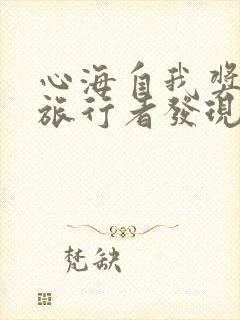 心海自我獎
旅行者發現
梵缺